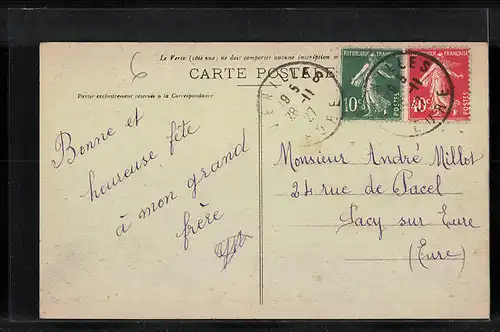 Le Verso (côté vue) ne doit comporter aucune inscription
CARTE POSTALE
Partie exclusivement réservée à la Correspondance
6
REPUBLIQUE FRANÇAISE
10c
FRANÇAISE
40c
19 5
28-11
27
EURE
Bonne et
heureuse fête
à mon grand
frère
Monsieur André Millot
24 rue de Pacel
Pacy sur Eure
(Eure)